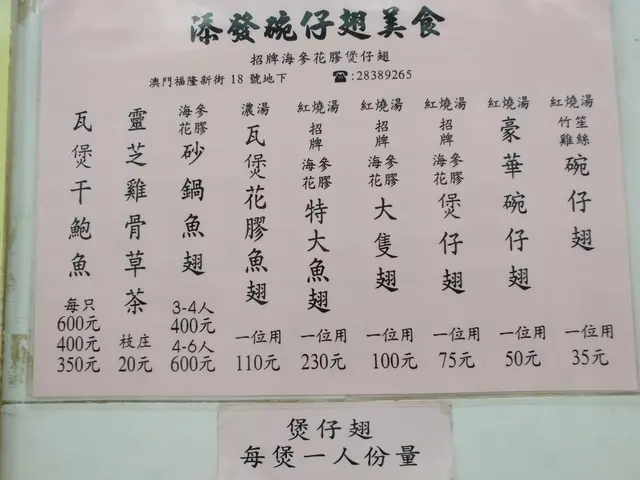 添發碗仔翅美食
招牌海參花膠煲仔翅
澳門福隆新街 18 號地下 ☎:28389265
紅燒湯
竹笙
雞絲
碗仔翅
35元
紅燒湯
豪華碗仔翅
一位用
50元
紅燒湯
招牌
海參
花膠
煲仔翅
一位用
75元
紅燒湯
招牌
海參
花膠
大隻翅
一位用
100元
紅燒湯
招牌
海參
花膠
特大魚翅
一位用
230元
濃湯
瓦煲花膠魚翅
一位用
110元
海參
花膠
砂鍋魚翅
3-4人
400元
4-6人
600元
靈芝雞骨草茶
枝庄
20元
瓦煲干鮑魚
每只
600元
400元
350元
一位用
煲仔翅
每煲一人份量